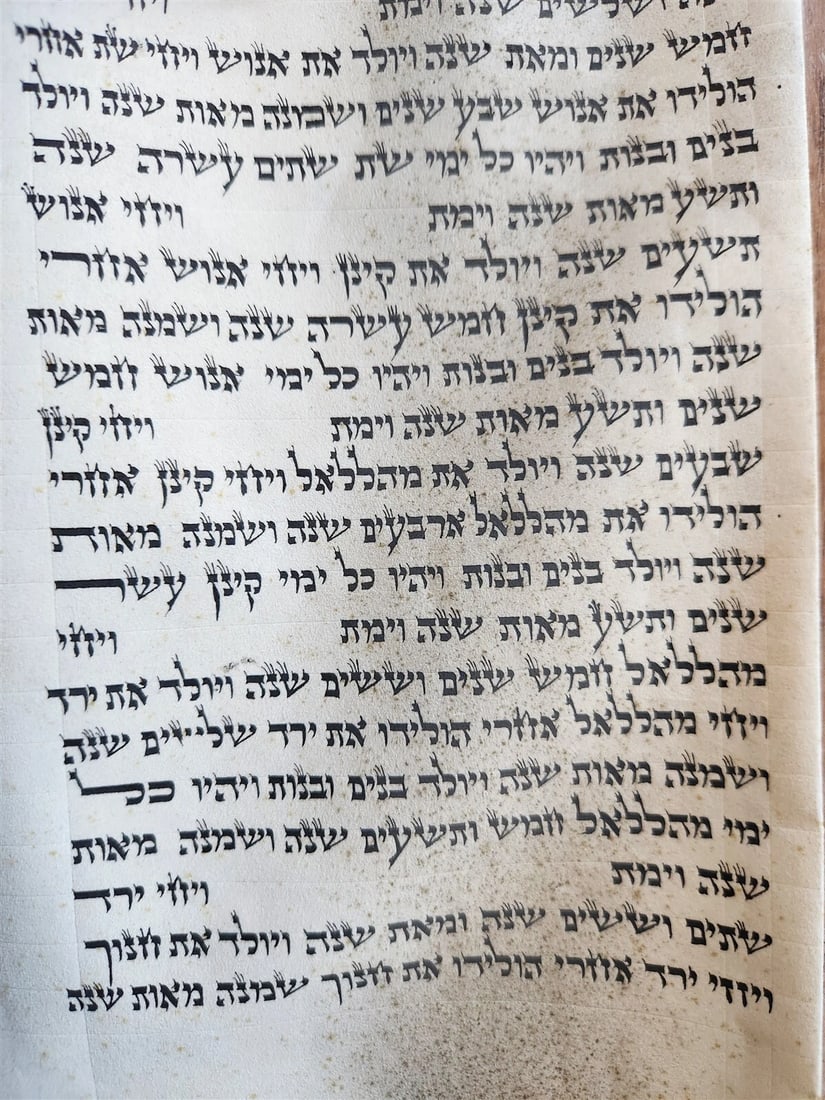 ושלשים שנה וימת ויחי
חמש שנים ומאת שנה ויולד את אנוש ויחי שת אחרי
הולידו את אנוש שבע שנים ושמנה מאות שנה ויולד
בנים ובנות ויהיו כל ימי שת שתים עשרה שנה
ותשע מאות שנה וימת ויחי אנוש
תשעים שנה ויולד את קינן ויחי אנוש אחרי
הולידו את קינן חמש עשרה שנה ושמנה מאות
שנה ויולד בנים ובנות ויהיו כל ימי אנוש חמש
שנים ותשע מאות שנה וימת ויחי קינן
שבעים שנה ויולד את מהללאל ויחי קינן אחרי
הולידו את מהללאל ארבעים שנה ושמנה מאות
שנה ויולד בנים ובנות ויהיו כל ימי קינן עשר
שנים ותשע מאות שנה וימת ויחי
מהללאל חמש שנים וששים שנה ויולד את ירד
ויחי מהללאל אחרי הולידו את ירד שלשים שנה
ושמנה מאות שנה ויולד בנים ובנות ויהיו כל
ימי מהללאל חמש ותשעים שנה ושמנה מאות
שנה וימת ויחי ירד
שתים וששים שנה ומאת שנה ויולד את חנוך
ויחי ירד אחרי הולידו את חנוך שמנה מאות שנה